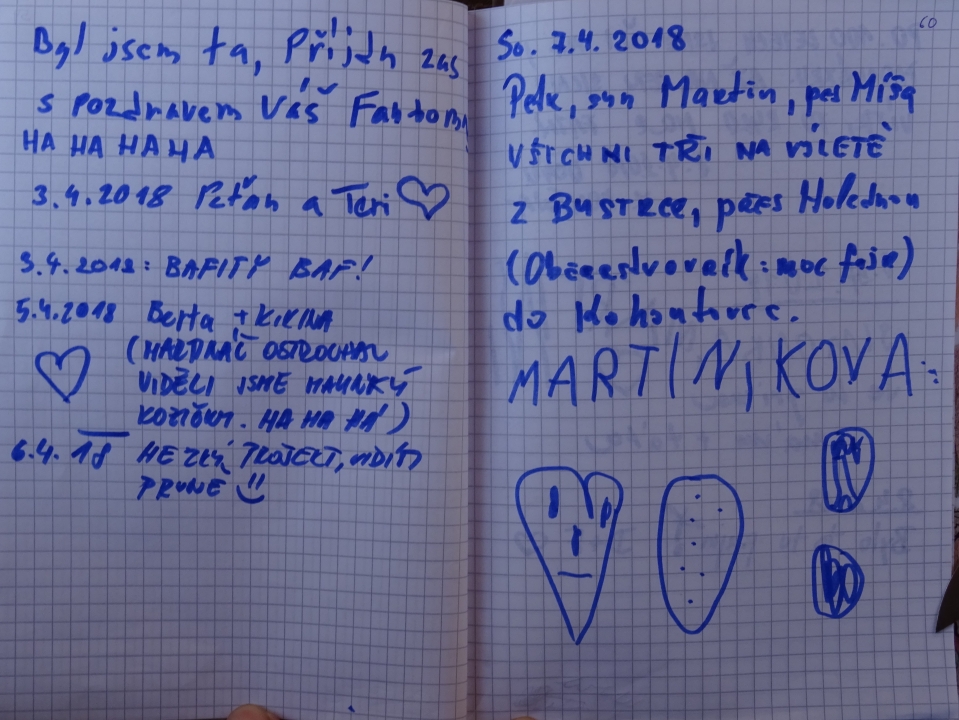 Byl jsem ta, Přijdu zas
s pozdravem Váš Fantom
HA HA HA HA
3.4.2018 Peťán a Teri
3.4.2018: BAFITY BAF!
5.4.2018 Berta + KIKINA
VIDĚLI JSME
HA HA HA)
6.4. 18 HEZKÝ PROJEKT,
60
So. 7.4.2018
Petr, syn Martin, pes Míša
VŠICHNI TŘI NA VÝLETĚ
z BYSTRCE, přes Holednou
(Občerstvovačk: moc fajn)
do Kohoutovic.
MARTIN, KOVA: